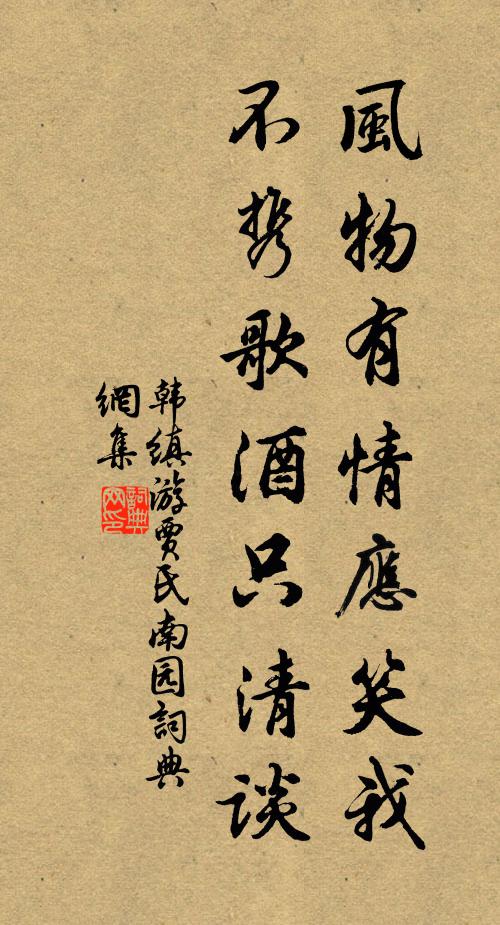 風物有情應笑我
不携歌酒只清談
韩縝游賈氏南园詞典
網集
詞典
网印